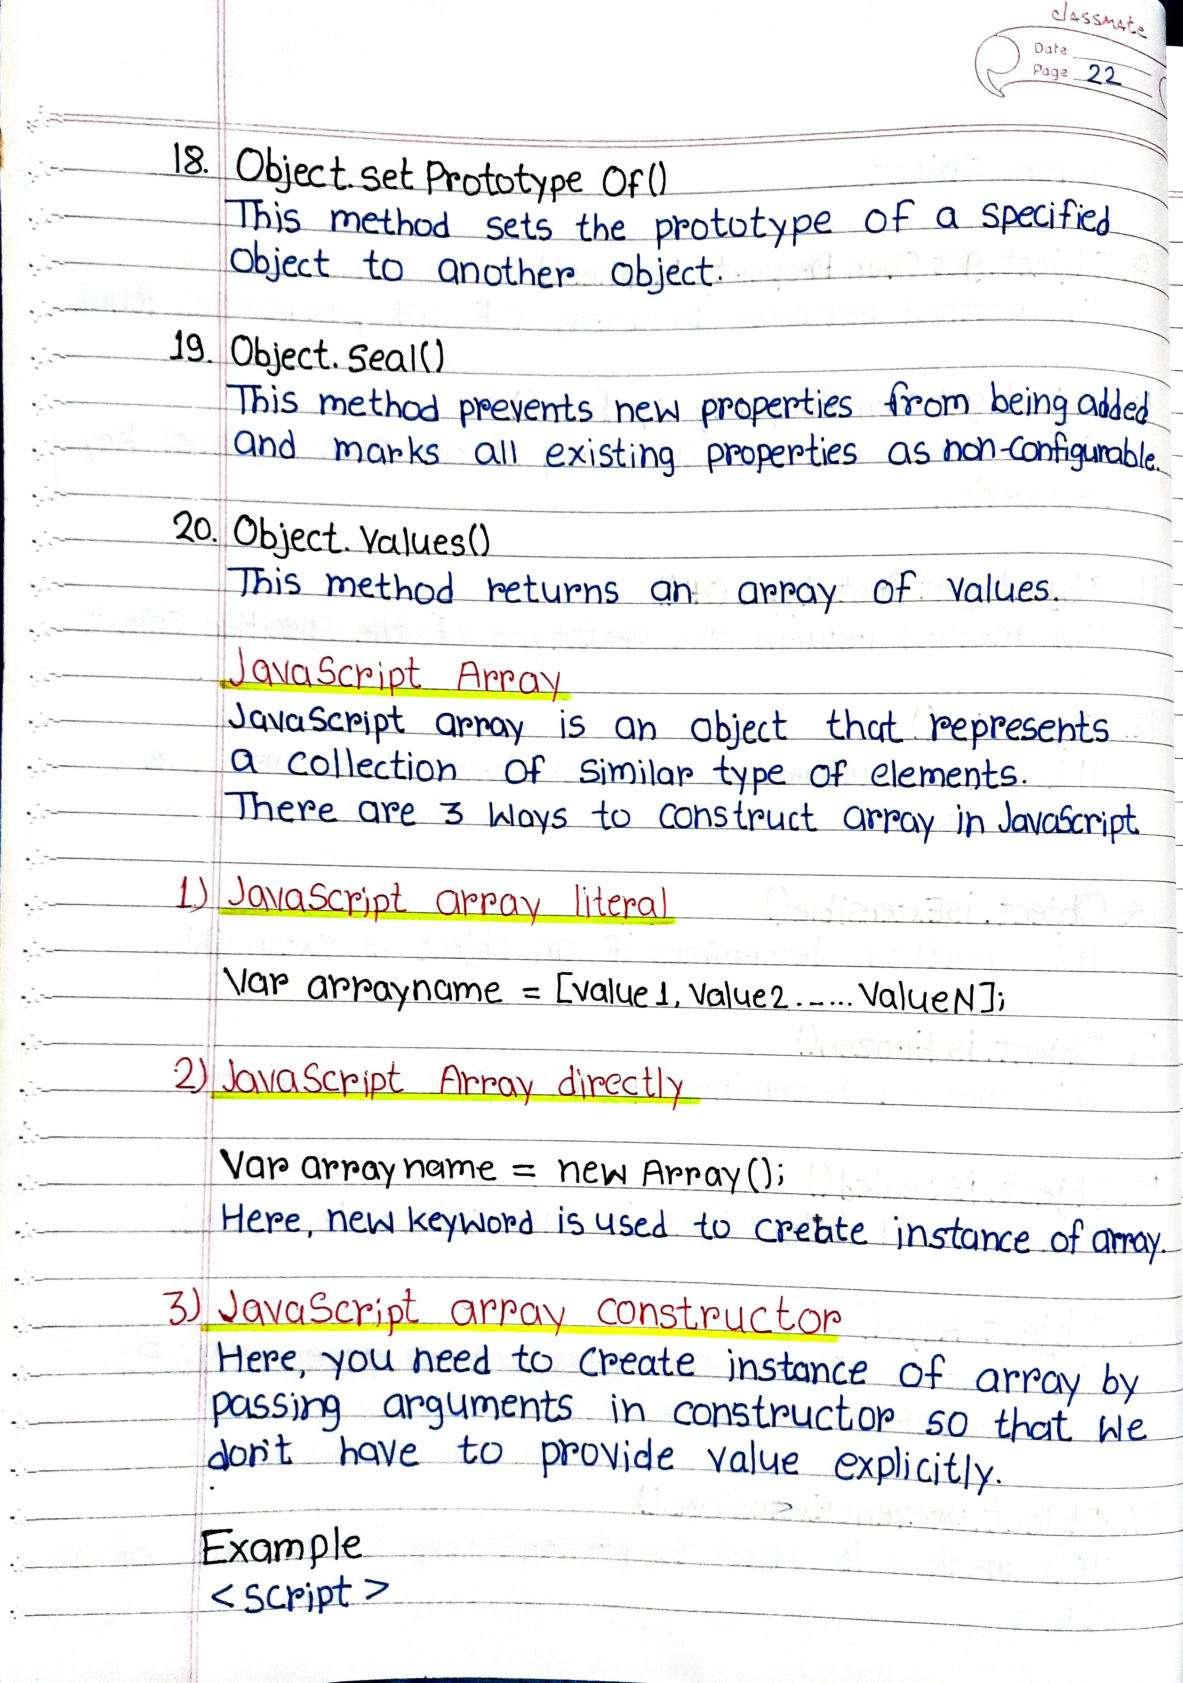 classmate
Date
Page 22
18. Object.set Prototype Of()
This method sets the prototype of a specified
object to another object.
19. Object.seal()
This method prevents new properties from being added
and marks all existing properties as non-configurable.
20. Object.values()
This method returns an array of values.
JavaScript Array
JavaScript array is an object that represents
a collection of similar type of elements.
There are 3 ways to construct array in JavaScript
1) JavaScript array literal
Var arrayname = [value1, value2.-.... ValueN];
2) JavaScript Array directly
Var arrayname = new Array();
Here, new keyword is used to create instance of array.
3) JavaScript array constructor
Here, you need to create instance of array by
passing arguments in constructor so that we
don't have to provide value explicitly.
Example
<script>